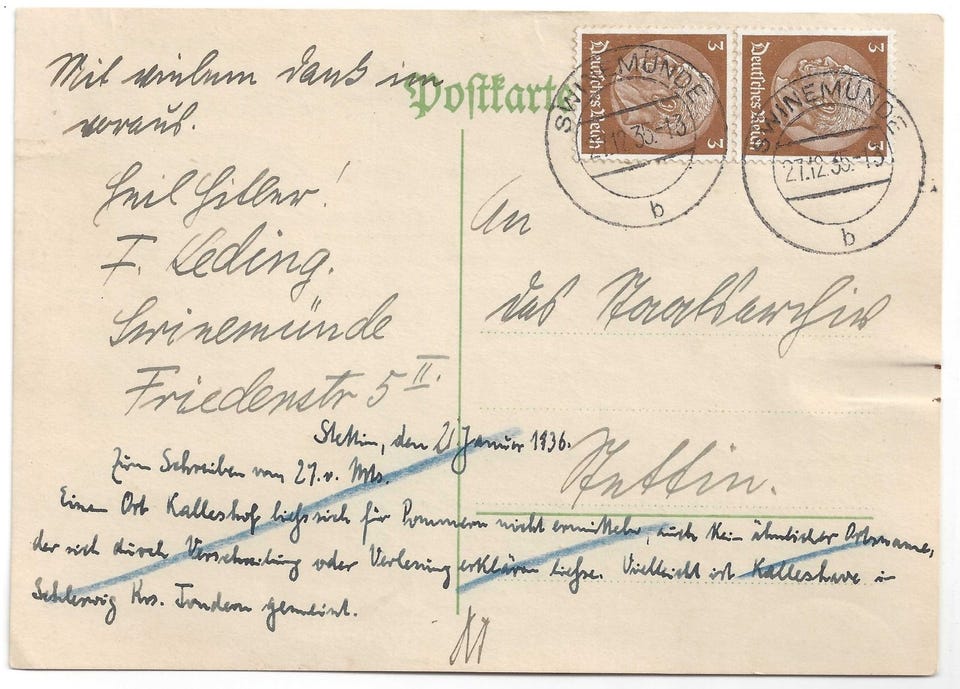 Mit vielem Dank im
voraus.
Heil Hitler!
F. Leding.
Swinemünde
Friedenstr 5 II.
Postkarte
Deutsches Reich
3
3
Deutsches Reich
3
3
SWINEMÜNDE
.12.35.-13
b
SWINEMÜNDE
27.12.35.-13
b
An
das Staatsarchiv
Stettin.
Stettin, den 2. Januar 1936.
Zum Schreiben vom 27. v. Mts.
Einen Ort Kalleshof liess sich für Pommern nicht ermitteln, auch kein ähnlicher Ortsname,
der sich durch Verschreibung oder Verlesung erklären liesse. Vielleicht ist Kalleshave in
Schleswig Krs. Tondern gemeint.